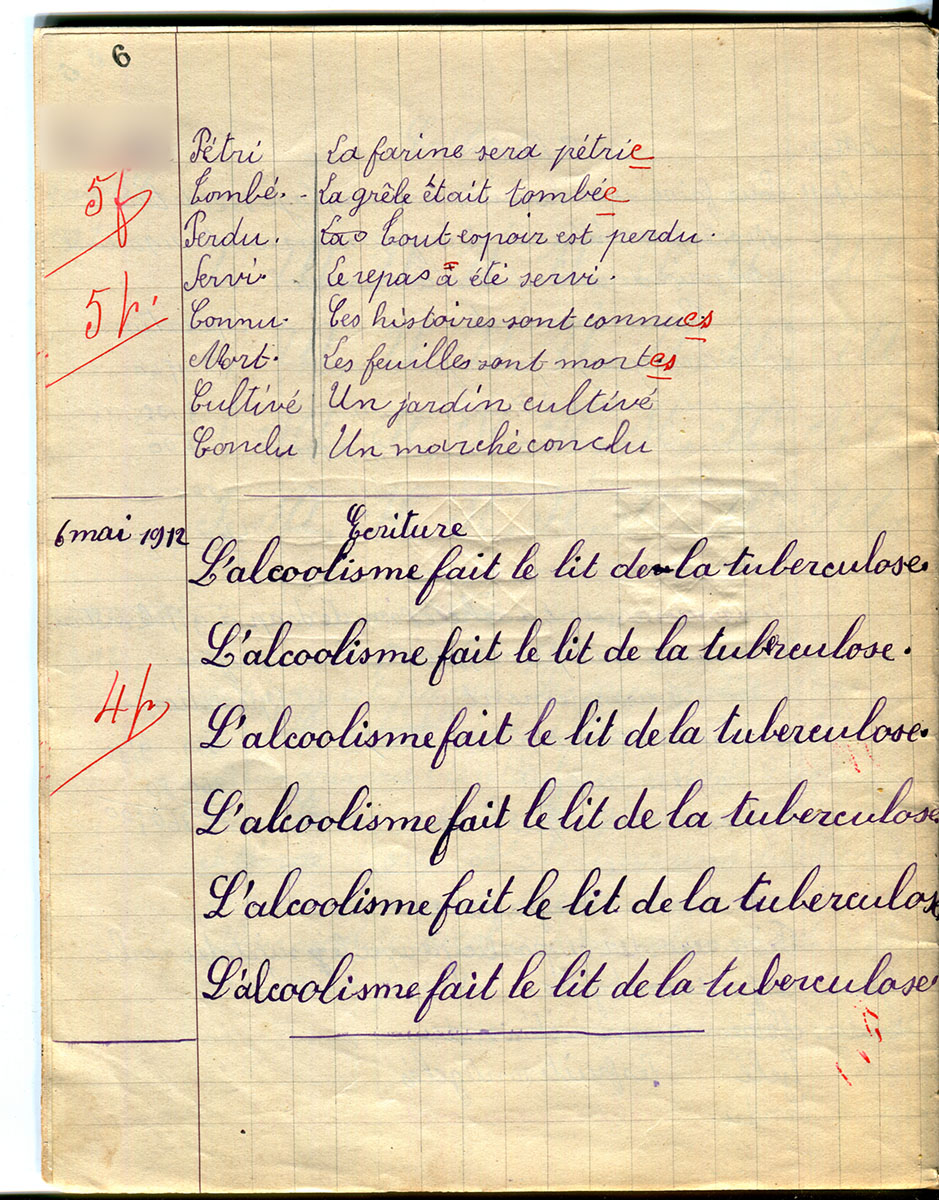 6
Pétri La farine sera pétrie
5f
Tombé. - La grêle était tombée
Perdu. Tout espoir est perdu.
Servi. Le repas a été servi.
5p.
Connu. Ces histoires sont connues
Mort. Les feuilles sont mortes
Cultivé Un jardin cultivé
Conclu Un marché conclu
6 mai 1912 Ecriture
L'alcoolisme fait le lit de la tuberculose.
L'alcoolisme fait le lit de la tuberculose.
4p
L'alcoolisme fait le lit de la tuberculose.
L'alcoolisme fait le lit de la tuberculose
L'alcoolisme fait le lit de la tuberculose
L'alcoolisme fait le lit de la tuberculose